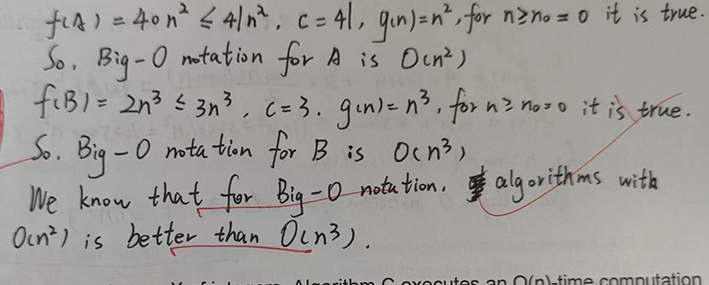 f(A) = 40n² ≤ 41n², c = 41, g(n) = n², for n ≥ n₀ = 0 it is true.
So, Big-O notation for A is O(n²)
f(B) = 2n³ ≤ 3n³, c = 3. g(n) = n³, for n ≥ n₀ = 0 it is true.
So, Big-O notation for B is O(n³)
We know that for Big-O notation, algorithms with
O(n²) is better than O(n³).
Algorithm C executes an O(n)-time computation